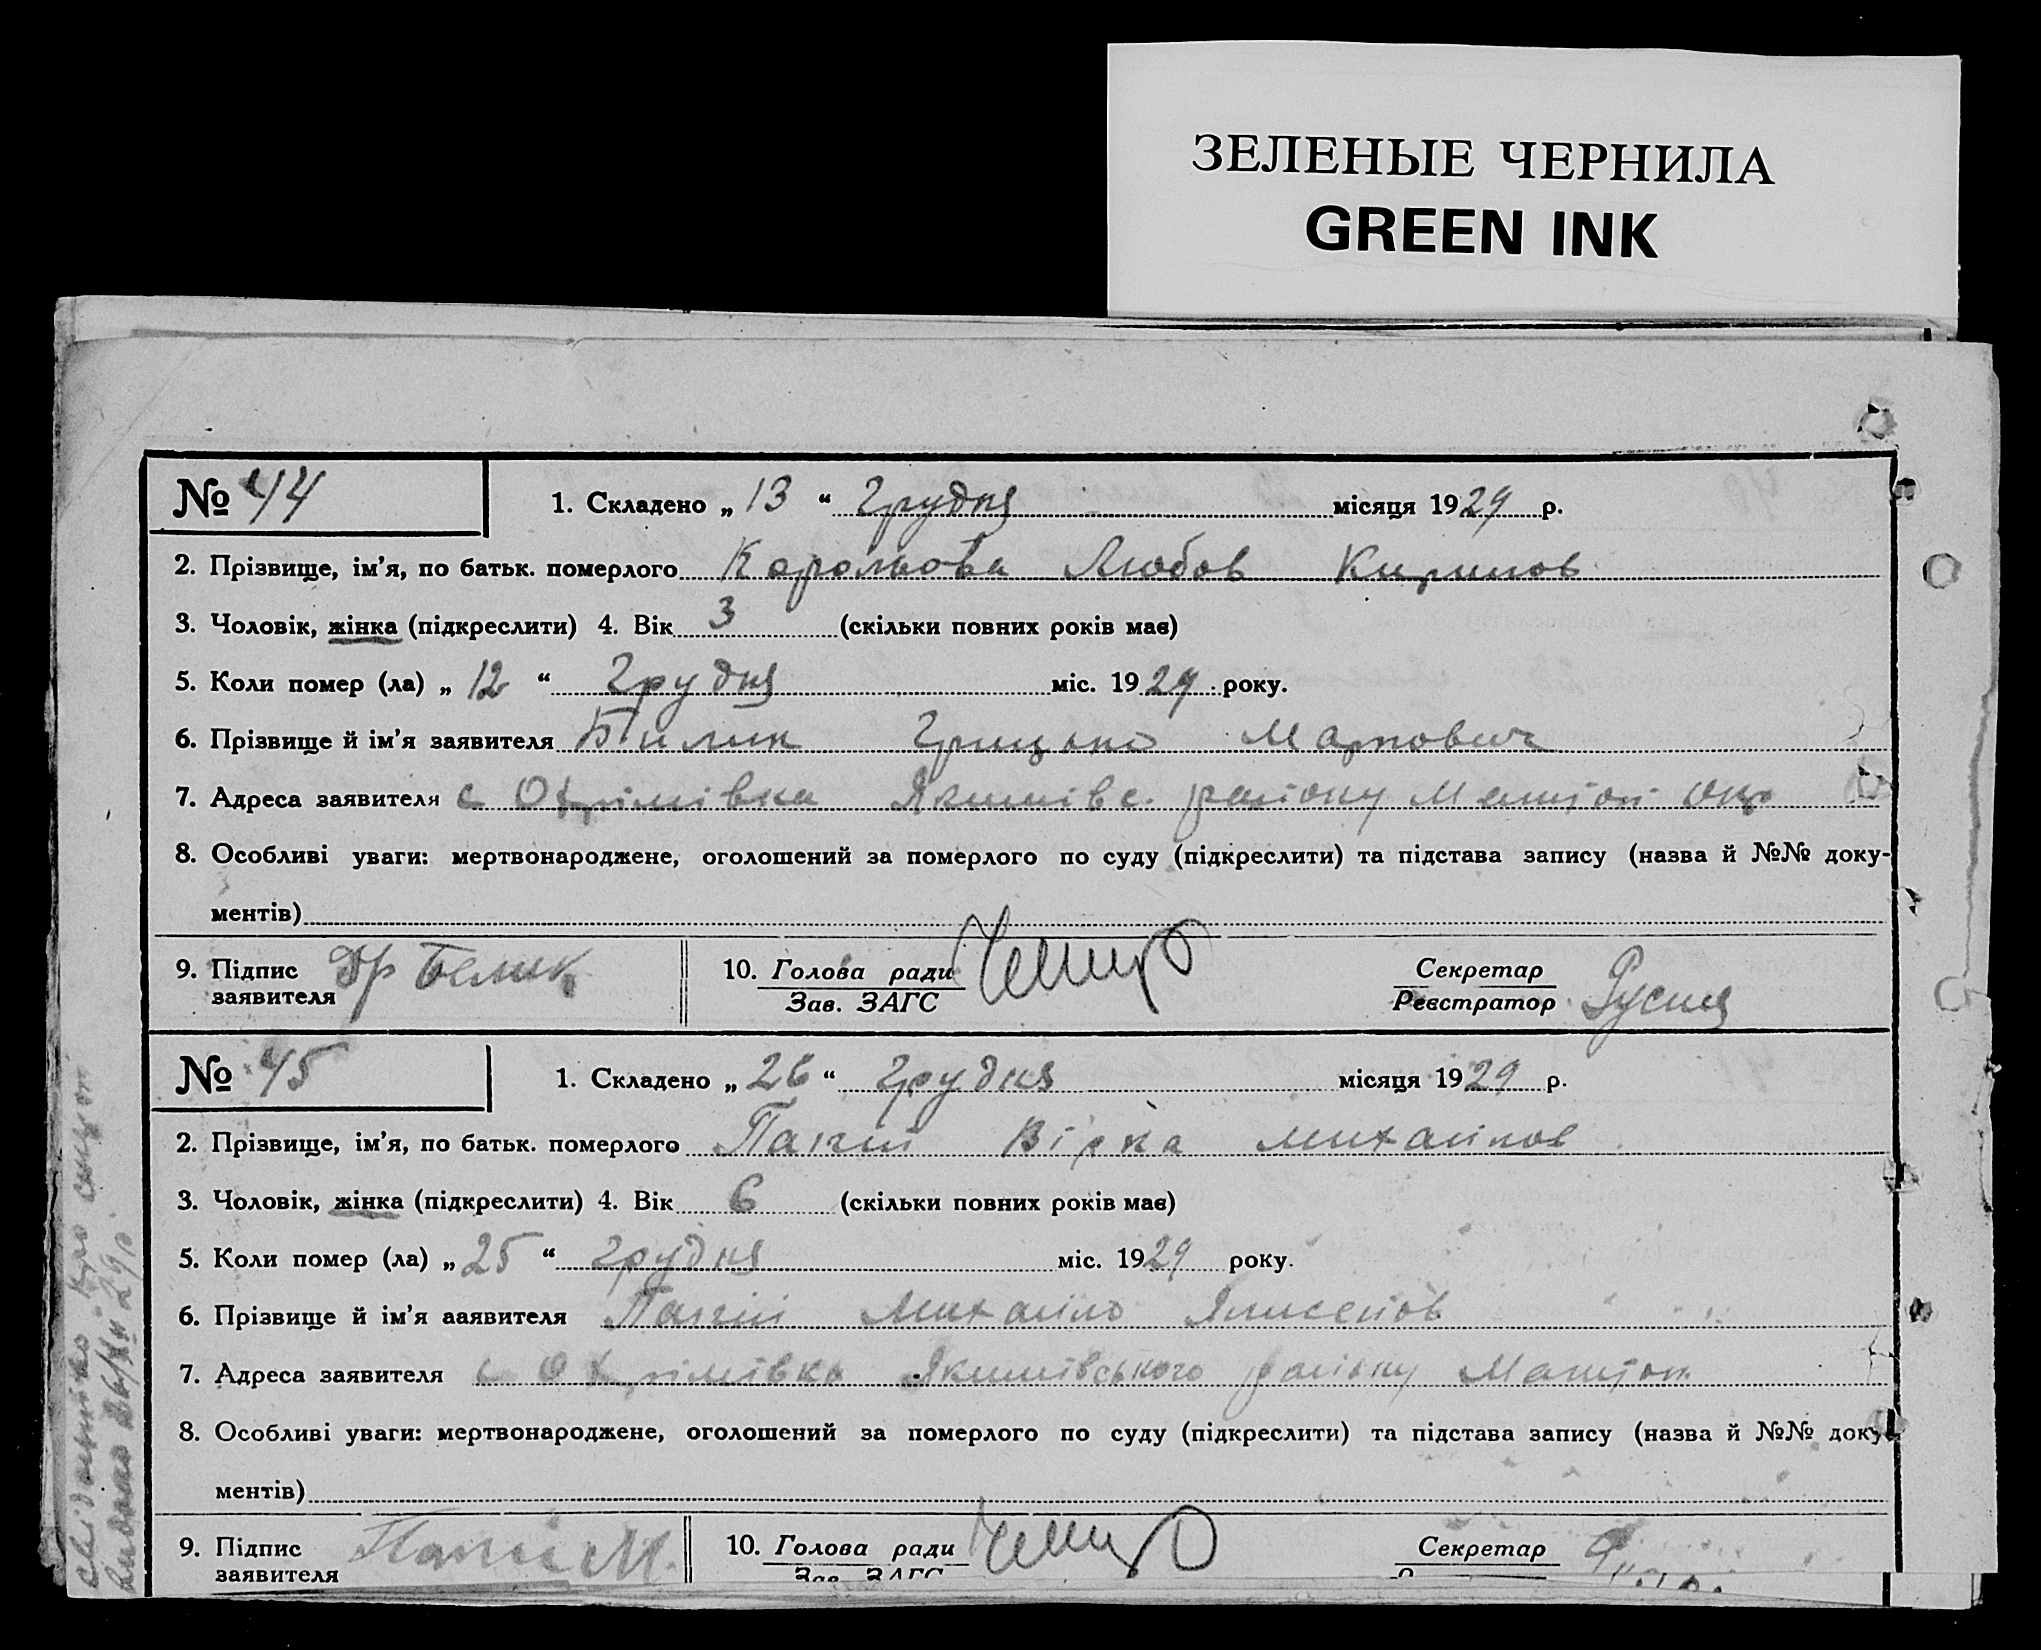 ЗЕЛЕНЫЕ ЧЕРНИЛА
GREEN INK
№ 44
1. Складено „ 13 “ Грудня місяця 1929 р.
2. Прізвище, ім’я, по батьк. померлого Корольова Любов Кирилов
3. Чоловік, жінка (підкреслити) 4. Вік 3 (скільки повних років має)
5. Коли помер (ла) „ 12 “ Грудня міс. 1929 року.
6. Прізвище й ім’я заявителя Билик Грицько Маркович
7. Адреса заявителя с Охрімівка Якимівс. району Мелітоп Окр
8. Особливі уваги: мертвонароджене, оголошений за померлого по суду (підкреслити) та підстава запису (назва й №№ доку-
ментів)
9. Підпис заявителя Гр Белик
10. Голова ради
Зав. ЗАГС
Секретар
Реєстратор
№ 45
1. Складено „ 26 “ грудня місяця 1929 р.
2. Прізвище, ім’я, по батьк. померлого Вірка михайлов
3. Чоловік, жінка (підкреслити) 4. Вік 6 (скільки повних років має)
5. Коли помер (ла) „ 25 “ грудня міс. 1929 року.
6. Прізвище й ім’я заявителя Михайло
7. Адреса заявителя с Охрімівка Якимівського району Мелітоп
8. Особливі уваги: мертвонароджене, оголошений за померлого по суду (підкреслити) та підстава запису (назва й №№ доку-
ментів)
9. Підпис заявителя М.
10. Голова ради
Зав. ЗАГС
Секретар
свідоцтво про
видано 26/XII 29р.